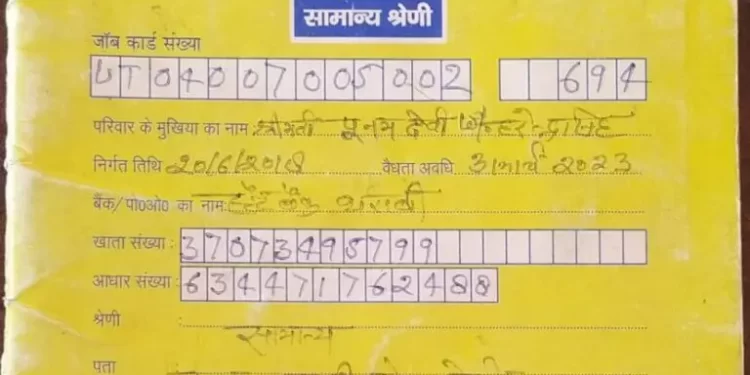 सामान्य श्रेणी
जॉब कार्ड संख्या
UT04007005002 694
परिवार के मुखिया का नाम श्रीमती पूनम देवी
निर्गत तिथि 20/6/2018 वैधता अवधि 31 मार्च 2023
बैंक/पो0ओ0 का नाम स्टेट बैंक
खाता संख्या : 37073495799
आधार संख्या : 634471762488
श्रेणी सामान्य
पता